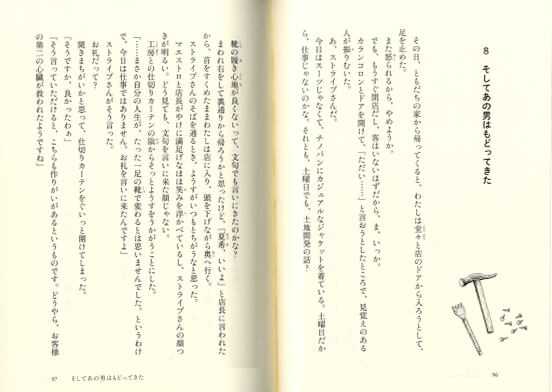 8 そしてあの男はもどってきた
その日、ともだちの家から帰ってくると、わたしは堂々と店のドアから入ろうとして、
足を止めた。
また怒られるから、やめようか。
でも、もうすぐ閉店だし、客はいないはずだから、ま、いっか。
カランコロンとドアを開けて、「ただい……」と言おうとしたところで、見覚えのある
人が振りむいた。
あ、ストライプさんだ。
今日はスーツじゃなくて、チノパンにカジュアルなジャケットを着ている。土曜日だか
ら、仕事じゃないのかな。それとも、土曜日でも、土地開発の話？
96
靴の履き心地が良くないって、文句でも言いにきたのかな？
まわれ右をして裏通りから帰ろうかと思ったけど、「夏希、いいよ」と店長に言われた
から、首をすくめたままわたしは店に入り、頭を下げながら奥へ行く。
ストライプさんのそばを通るとき、ようすがいつもとちがうなと思った。
マエストロと店長がやけに満足げなほほ笑みを浮かべているし、ストライプさんの顔つ
きが明るい。どう見ても、文句を言いに来た顔じゃない。
工房との仕切りカーテンの陰からそっとようすをうかがうことにした。
「……まさか自分の人生が、たった一足の靴で変わるとは思いませんでした。というわけ
で、今日は仕事ではありません。お礼を言いに来たんですよ」
ストライプさんがそう言った。
お礼だって？
聞きまちがいかと思って、仕切りカーテンをぐいっと開けてしまった。
「そうですか、良かったわぁ」
「そう言っていただけると、こちらも作りがいがあるというものです。どうやら、お客様
の第二の心臓が救われたようですね」
97 そしてあの男はもどってきた